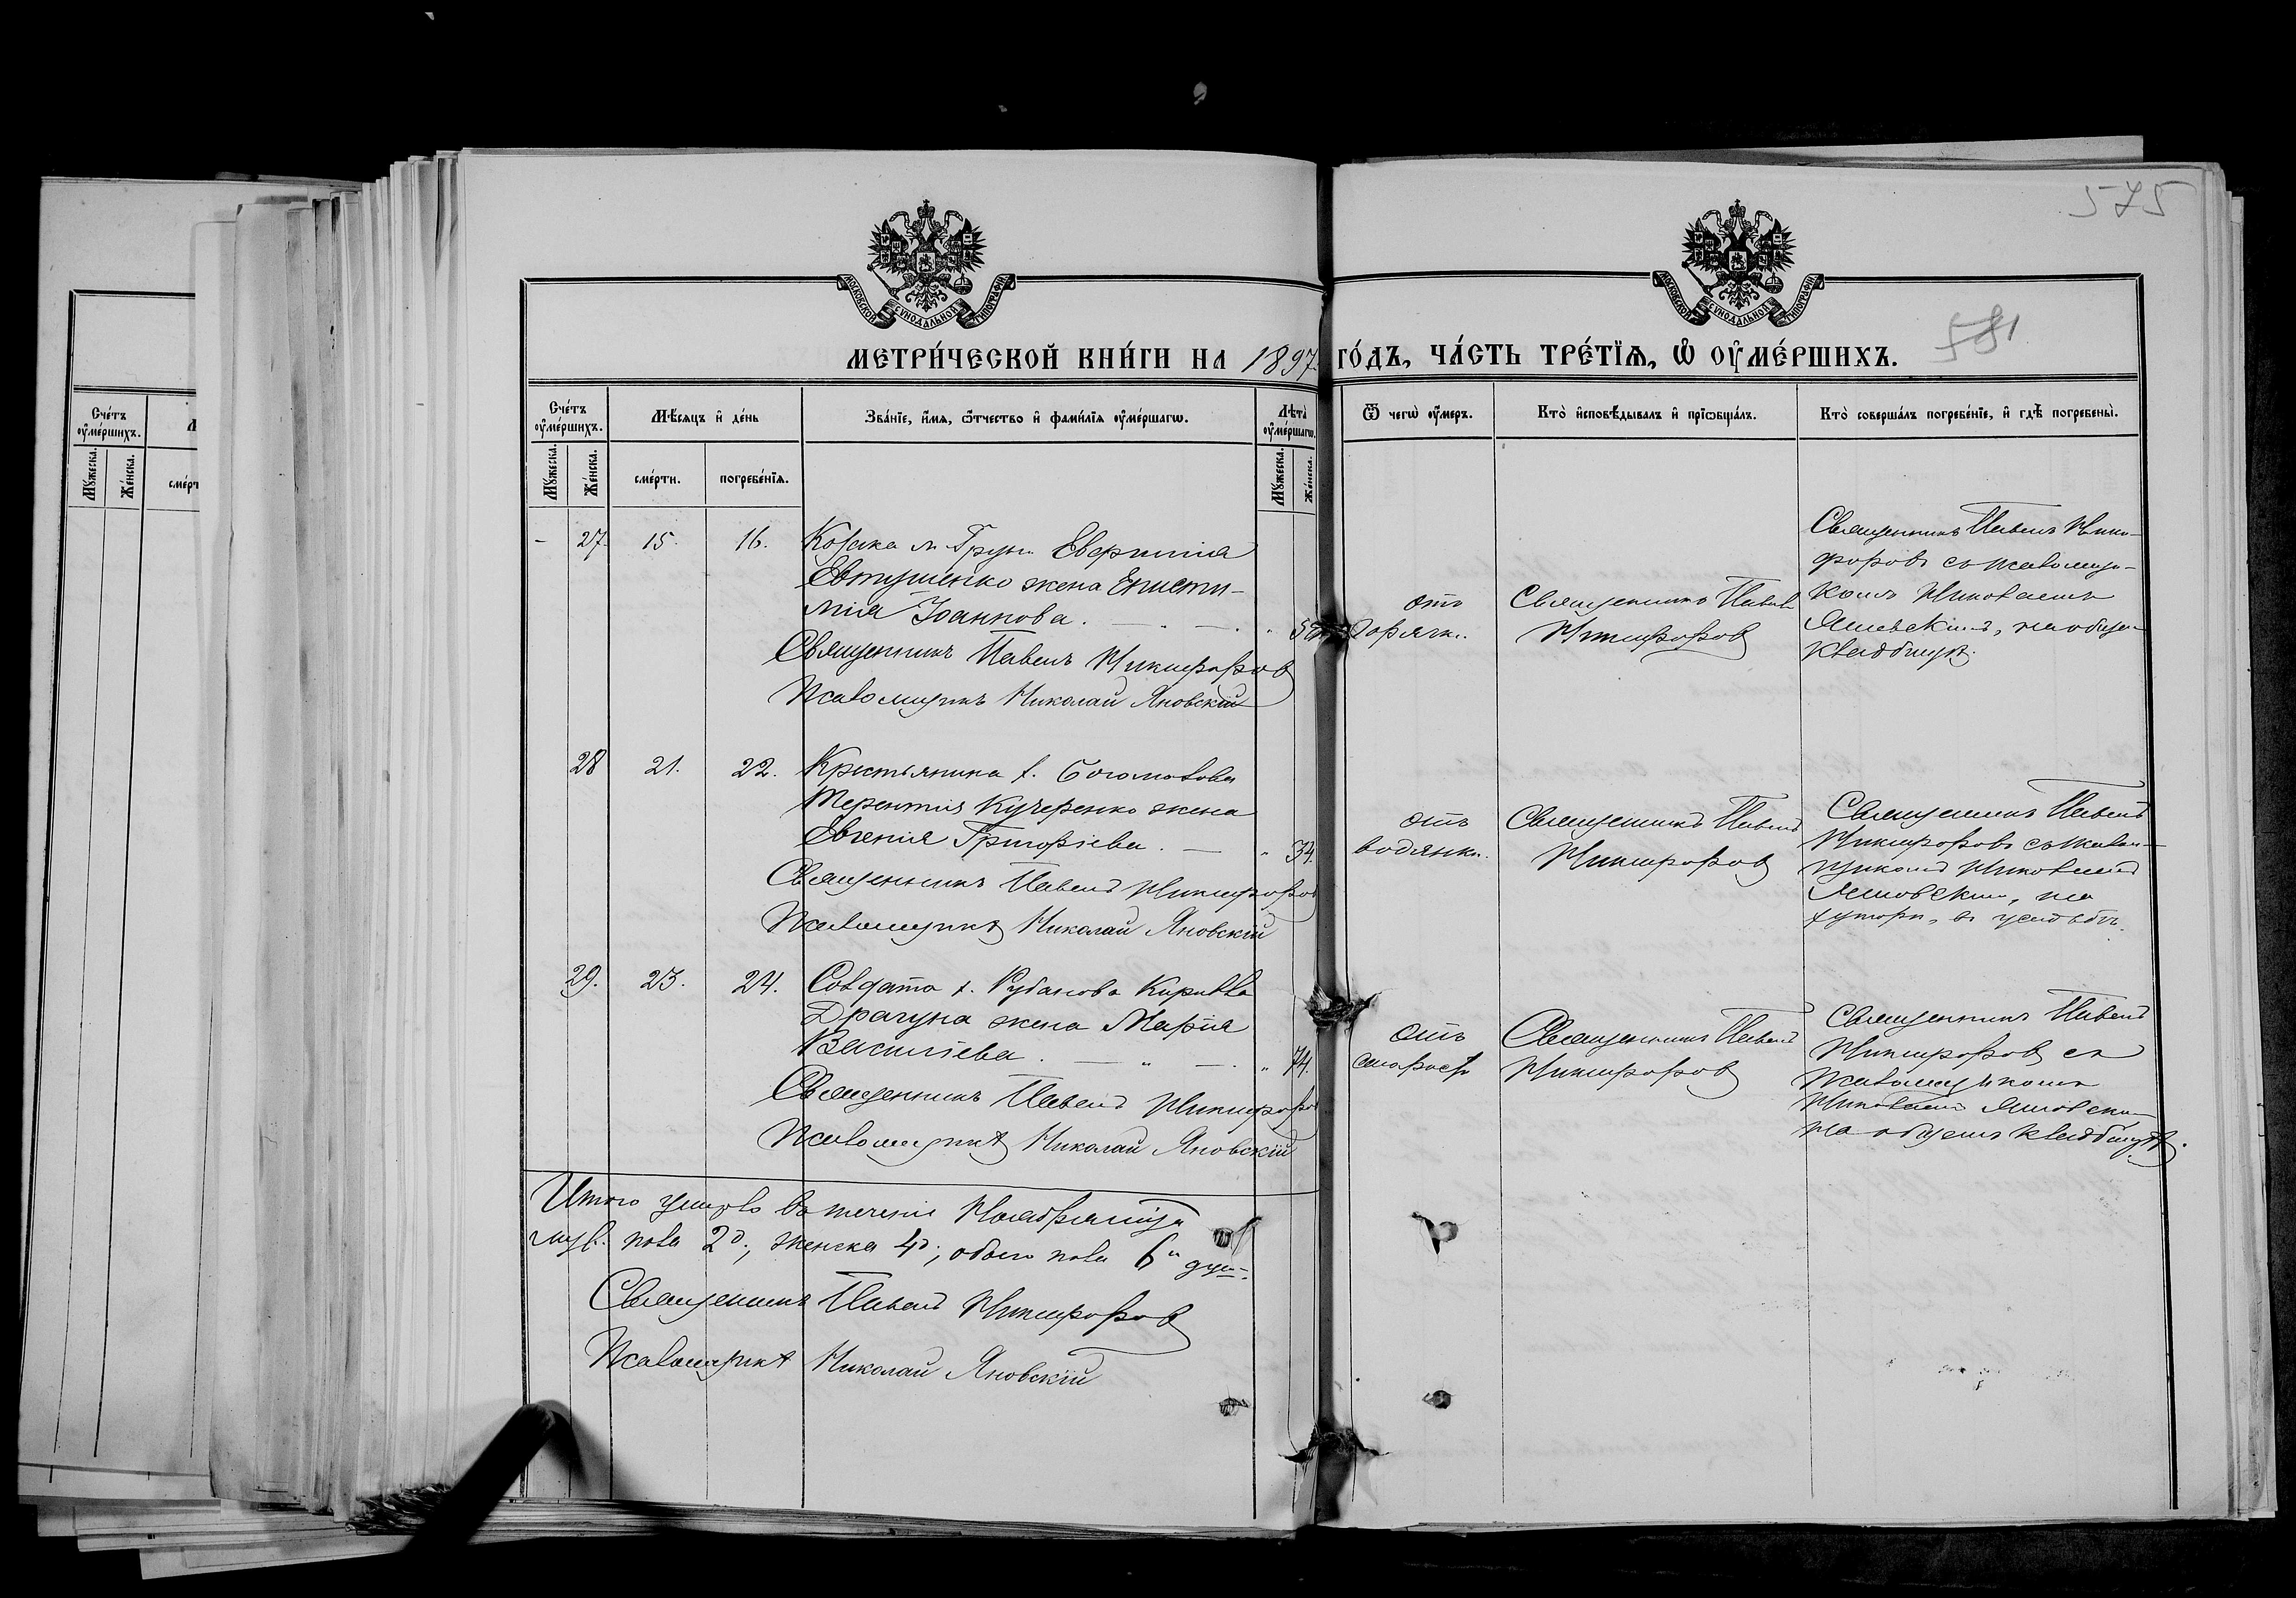 575
581
МОСКОВСКОЙ СѴНОДАЛЬНОЙ ТИПОГРАФІИ
МОСКОВСКОЙ СѴНОДАЛЬНОЙ ТИПОГРАФІИ
МЕТРИ́ЧЕСКОЙ КНИ́ГИ НА 1897 ГО́ДЪ, ЧА́СТЬ ТРЕ́ТЇѦ, Ѡ҆ ОУ҆МЕ́РШИХЪ.
Сче́тъ оу҆ме́ршихъ.
Мѣ́сяцъ и҆ де́нь
Зва́нїе, и҆́мя, ѻ҆́тчество и҆ фами́лїя оу҆ме́ршагѡ.
Лѣ́та оу҆ме́ршагѡ.
Ѿ чегѡ̀ оу҆́меръ.
Кто̀ и҆сповѣ́дывалъ и҆ прїѡбща́лъ.
Кто̀ соверша́лъ погребе́нїе, и҆ гдѣ̀ погребены̀.
Мꙋ́жеска.
Же́нска.
сме́рти.
погребе́нїя.
Мꙋ́жеска.
Же́нска.
- 27. 15. 16. Козака м. Груни
Евтушенко жена Еписти-
мія Іоаннова.
Священникъ Павелъ Никифоровъ
Псаломщикъ Николай Яновскій
отъ
горячк.
Священникъ Павелъ
Никифоровъ
Священникъ Павелъ Ники-
форовъ съ псаломщи-
комъ Николаемъ
Яновскимъ, на общем
кладбищѣ.
28 21. 22. Крестьянина х. Богомолова
Терентія Кучеренко жена
Евгенія Григоріева. 34.
Священникъ Павелъ Никифоров
Псаломщикъ Николай Яновскій
отъ
водянки.
Священникъ Павелъ
Никифоровъ
Священникъ Павелъ
Никифоровъ съ псалом-
щикомъ Николаемъ
Яновским, на
хуторѣ, въ усадьбѣ.
29. 23. 24. Солдата х. Рубанова Кирилла
Драгуна жена Марія
Василіева. 74.
Священникъ Павелъ Никифоров
Псаломщикъ Николай Яновскій
отъ
старост
Священникъ Павелъ
Никифоровъ
Священникъ Павелъ
Никифоровъ съ
псаломщикомъ
Николаемъ Яновским
на общемъ кладбищѣ.
Итого умерло въ теченіи Ноября мѣсяца
муж. пола 2д., женска 4д.; обоего пола 6 душ.
Священникъ Павелъ Никифоровъ
Псаломщикъ Николай Яновскій
Сче́тъ оу҆ме́ршихъ.
Мꙋ́жеска.
Же́нска.